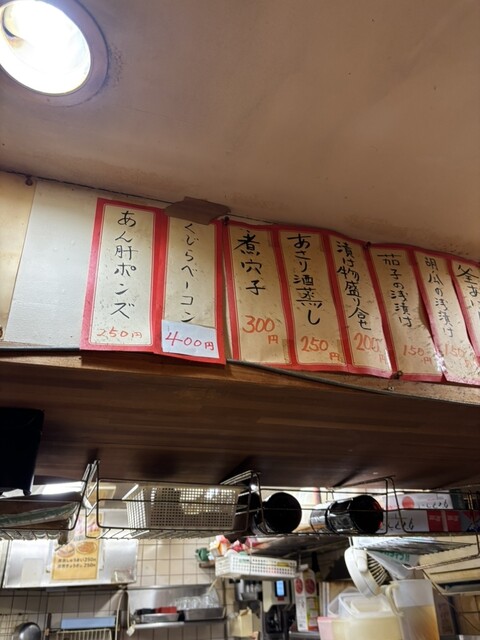 あん肝ポンズ
250円
くじらベーコン
400円
煮穴子
300円
あさり酒蒸し
250円
漬け物盛り合せ
200円
茄子の浅漬け
150円
胡瓜の浅漬け
150円
釜あ